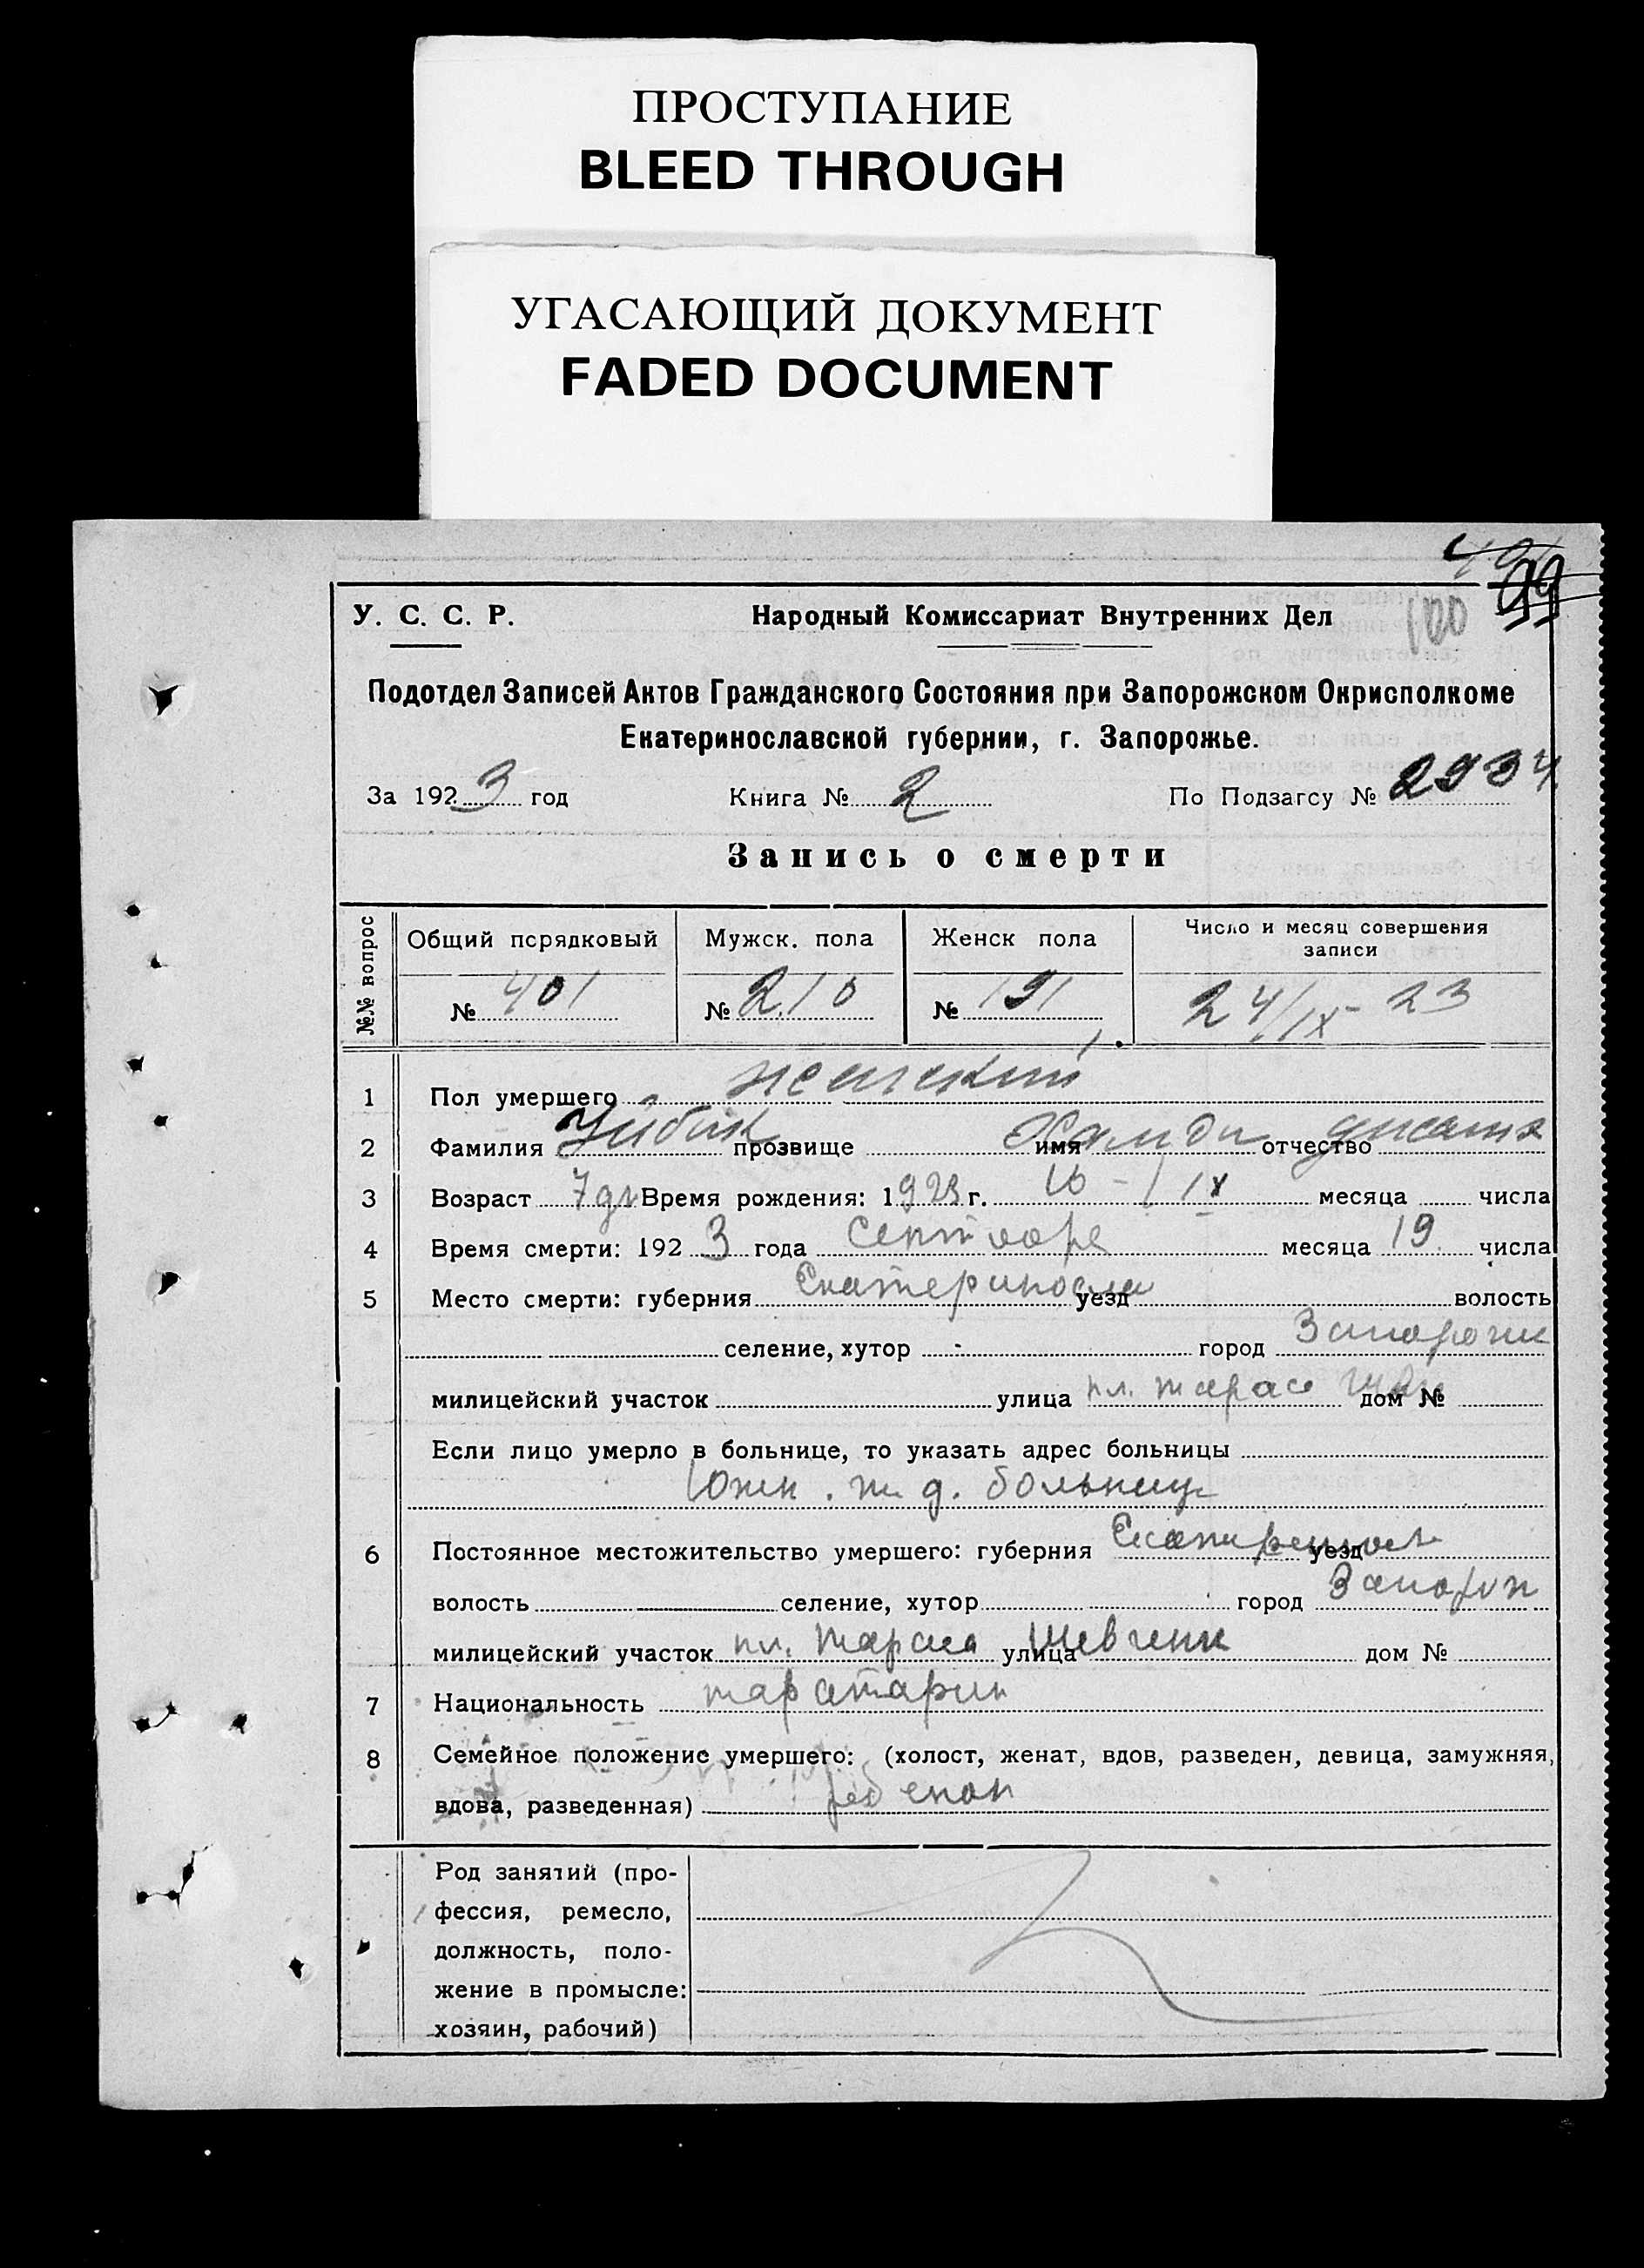 ПРОСТУПАНИЕ
BLEED THROUGH
УГАСАЮЩИЙ ДОКУМЕНТ
FADED DOCUMENT
99
100
У. С. С. Р. Народный Комиссариат Внутренних Дел
Подотдел Записей Актов Гражданского Состояния при Запорожском Окрисполкоме
Екатеринославской губернии, г. Запорожье.
За 1923 год Книга № 2 По Подзагсу № 2934
Запись о смерти
№№ вопрос
Общий порядковый Мужск. пола Женск пола Число и месяц совершения
записи
№ 401 № 210 № 191 24/IX - 23
1 Пол умершего женский
2 Фамилия прозвище имя отчество
3 Возраст 7 дн Время рождения: 1923 г. IX месяца числа
4 Время смерти: 1923 года Сентября месяца 19 числа
5 Место смерти: губерния Екатеринослав уезд волость
селение, хутор город Запорож
милицейский участок улица пл. Тараса дом №
Если лицо умерло в больнице, то указать адрес больницы
Южн. ж д. больниц
6 Постоянное местожительство умершего: губерния Екатериносл уезд
волость селение, хутор город Запорож
милицейский участок пл. Тараса улица Шевченк дом №
7 Национальность
8 Семейное положение умершего: (холост, женат, вдов, разведен, девица, замужняя,
вдова, разведенная) ребенок
Род занятий (про-
фессия, ремесло,
должность, поло-
жение в промысле:
хозяин, рабочий)